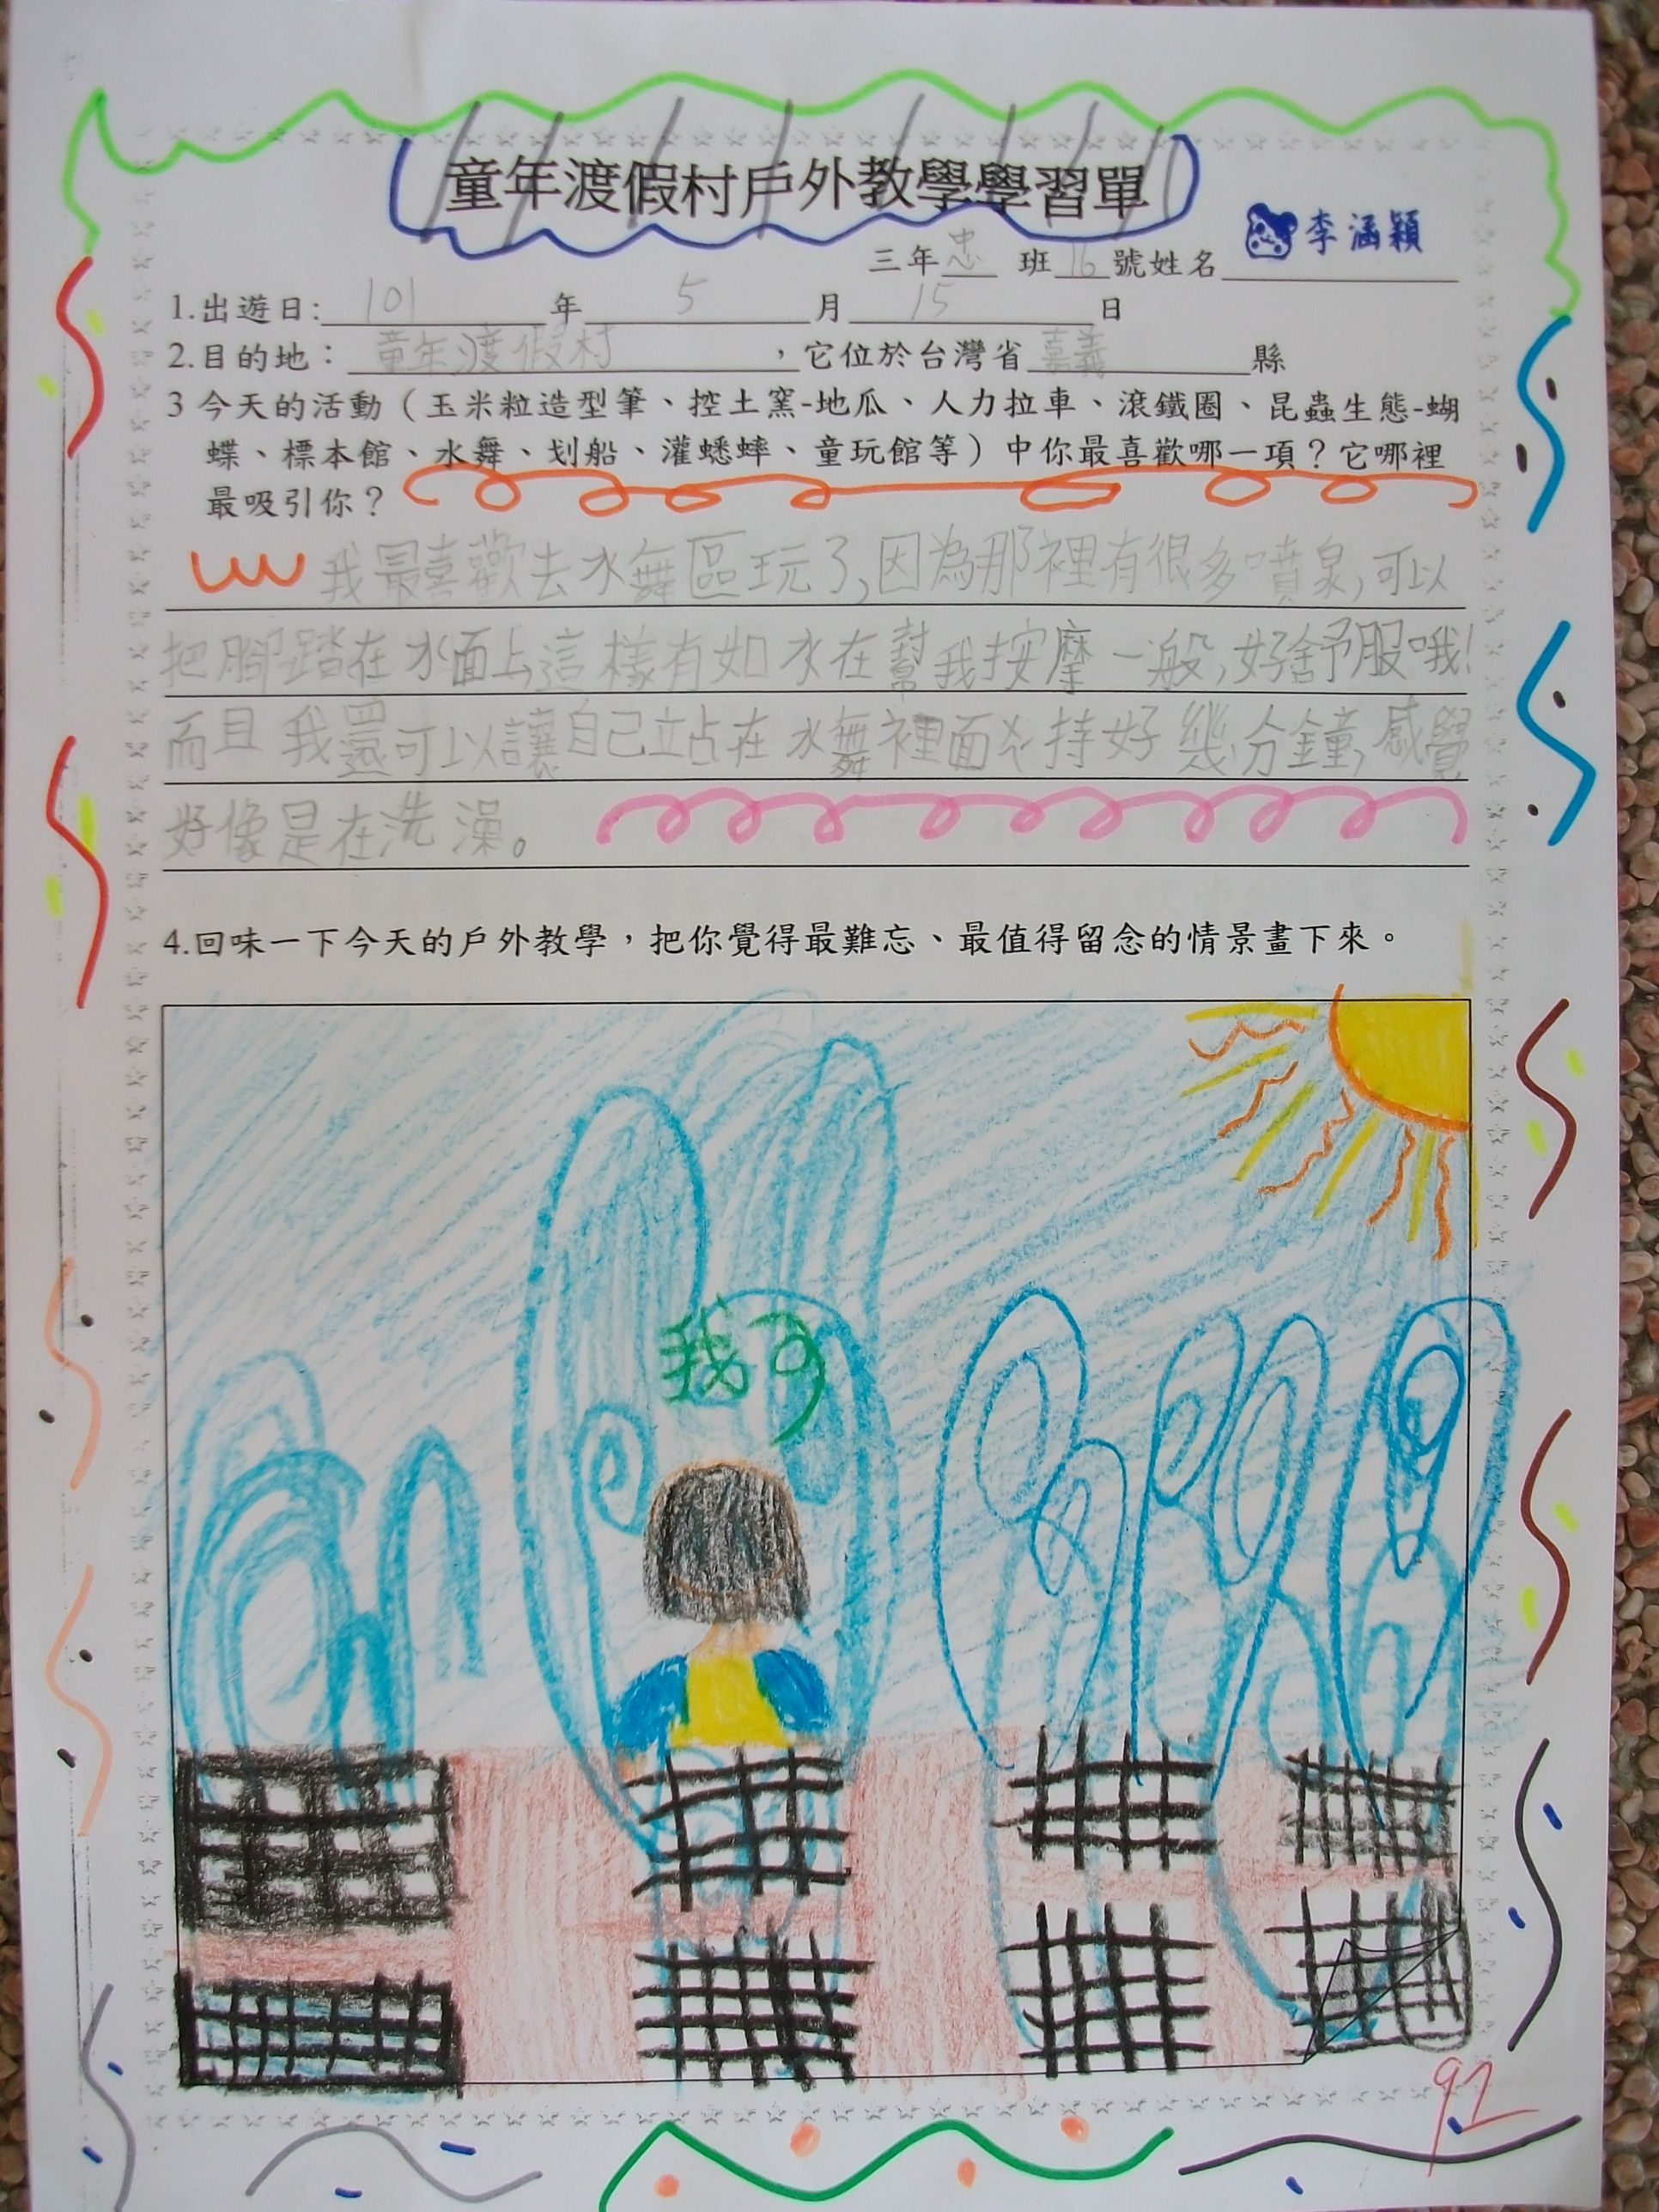 童年渡假村戶外教學學習單
三年忠班16號姓名 李涵穎
1.出遊日:101年5月15日
2.目的地：童年渡假村，它位於台灣省嘉義縣
3 今天的活動（玉米粒造型筆、控土窯-地瓜、人力拉車、滾鐵圈、昆蟲生態-蝴
蝶、標本館、水舞、划船、灌蟋蟀、童玩館等）中你最喜歡哪一項？它哪裡
最吸引你？
我最喜歡去水舞區玩了,因為那裡有很多噴泉,可以
把腳踏在水面上這樣有如水在幫我按摩一般,好舒服哦!
而且我還可以讓自己站在水舞裡面持好幾分鐘,感覺
好像是在洗澡。
4.回味一下今天的戶外教學，把你覺得最難忘、最值得留念的情景畫下來。
我
92